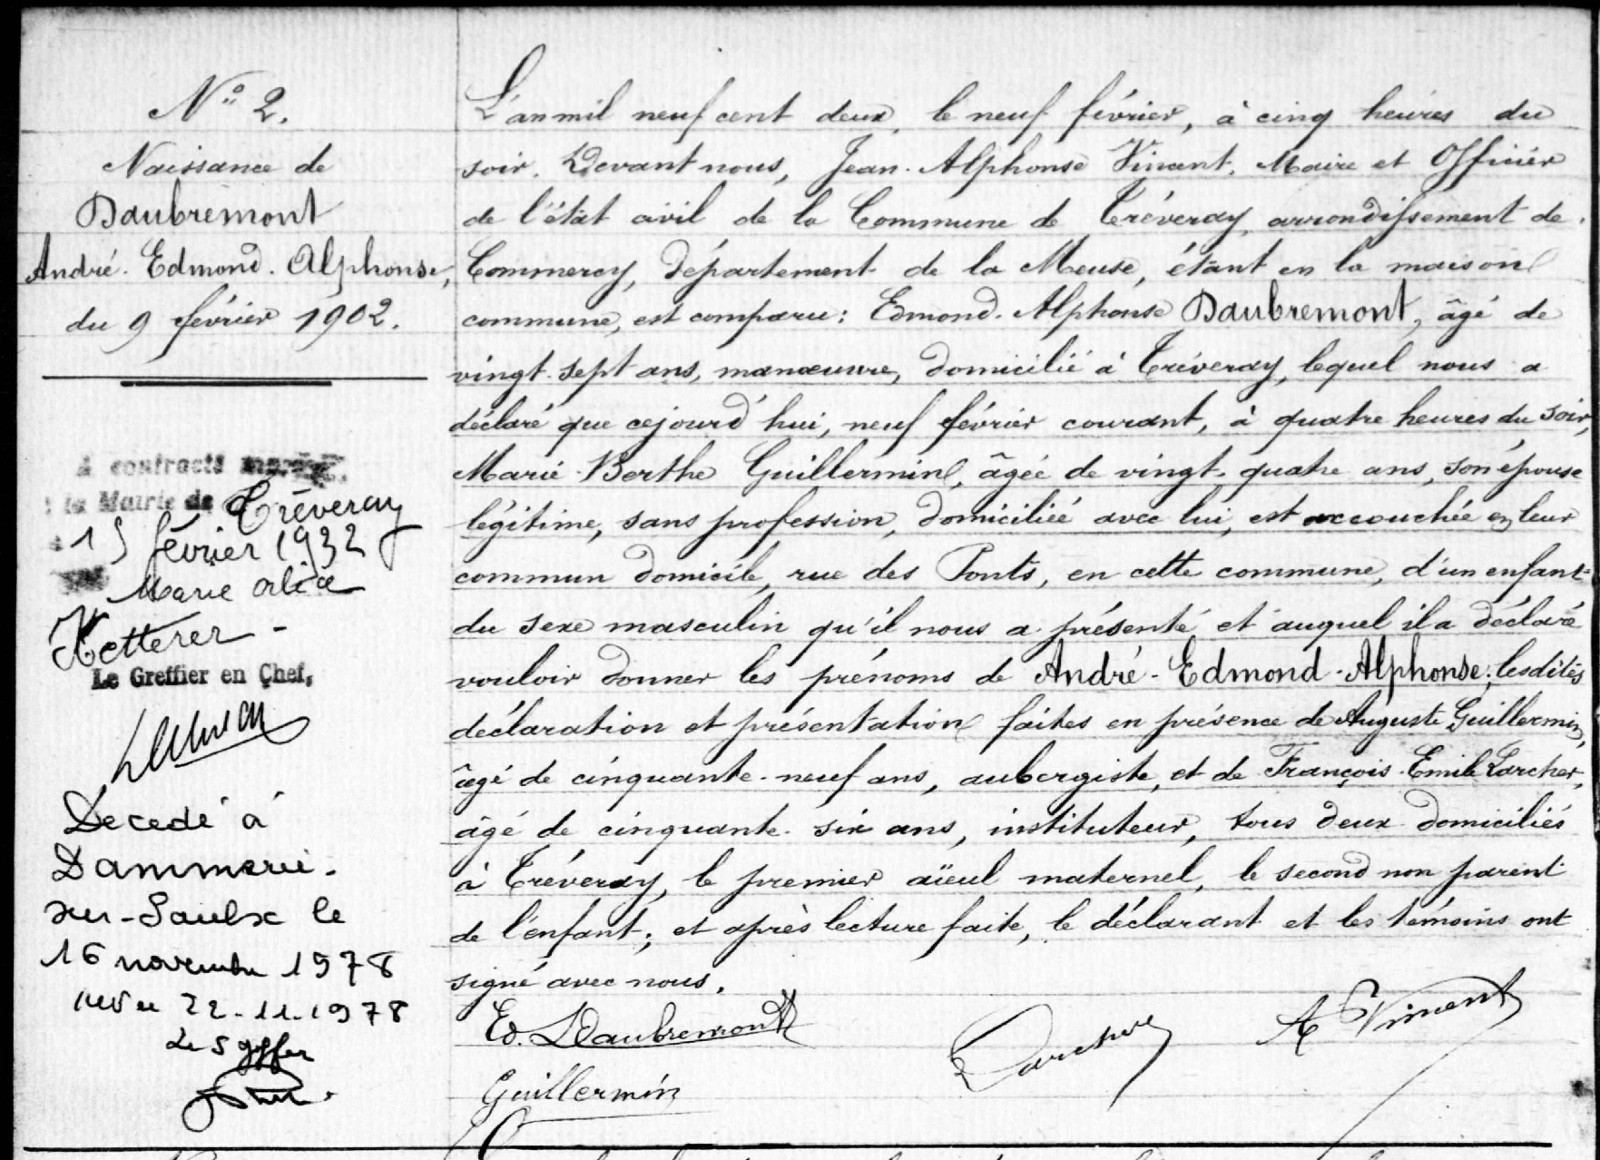 N° 2.
Naissance de
Daubremont
André. Edmond. Alphonse,
du 9 février 1902.
A contracté mariage
à la Mairie de Tréveray
le 15 février 1932
Marie Alice
Ketterer -
Le Greffier en Chef,
Décédé à
Dammarie-
sur-Saulx le
16 novembre 1978
22-11-1978
L'an mil neuf cent deux, le neuf février, à cinq heures du
soir. Devant nous, Jean-Alphonse Vinent, Maire et Officier
de l'état civil de la Commune de Tréveray, arrondissement de
Commercy, département de la Meuse, étant en la maison
commune, est comparu: Edmond-Alphonse Daubremont, âgé de
vingt-sept ans, manœuvre, domicilié à Tréveray, lequel nous a
déclaré que cejourd'hui, neuf février courant, à quatre heures du soir,
Marie-Berthe Guillermin, âgée de vingt-quatre ans, son épouse
légitime, sans profession, domiciliée avec lui, est accouchée en leur
commun domicile, rue des Ponts, en cette commune, d'un enfant
du sexe masculin qu'il nous a présenté et auquel il a déclaré
vouloir donner les prénoms de André-Edmond-Alphonse; lesdites
déclaration et présentation faites en présence de Auguste Guillermin,
âgé de cinquante-neuf ans, aubergiste, et de François-Emile Larcher,
âgé de cinquante-six ans, instituteur, tous deux domiciliés
à Tréveray, le premier aïeul maternel, le second non parent
de l'enfant; et après lecture faite, le déclarant et les témoins ont
signé avec nous.
Ed. Daubremont Larcher A Vinent
Guillermin